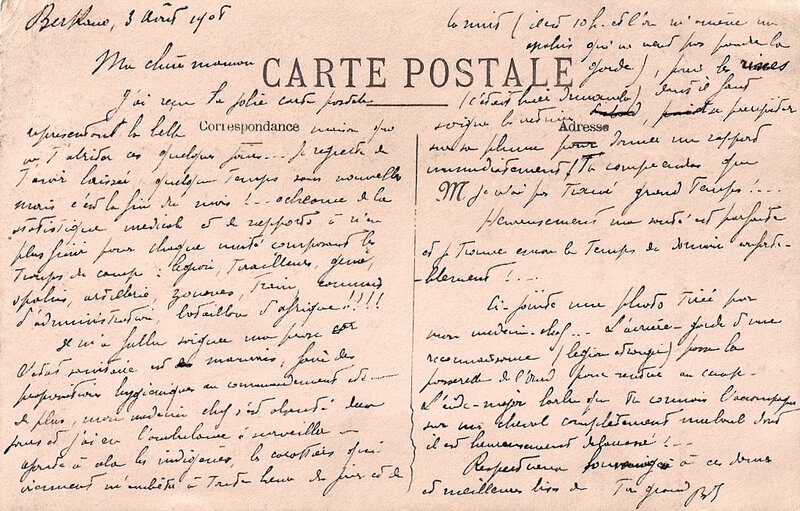 Berkane, 3 Août 1908
Ma chère maman
CARTE POSTALE
Correspondance
Adresse
J'ai reçu la jolie carte postale
représentant la belle maison qui
va t'abriter ces quelques jours... Je regrette de
t'avoir laissée quelque temps sans nouvelles
mais c'est la fin du mois !... de la
statistique médicale et de rapports à n'en
plus finir pour chaque unité composant les
Troupes du camp : légion, Tirailleurs, génie,
spahis, artillerie, zouaves, Train, commis
d'administration, bataillon d'afrique !!!!
Il m'a fallu soigner ma prose car
l'état sanitaire est mauvais, faire des
propositions hygiéniques au commandement etc—
De plus, mon médecin chef s'est absenté deux
jours et j'ai eu l'ambulance à surveiller —
ajoute à cela les indigènes, les qui
viennent m'embêter à toute heure du jour et de
la nuit (il est 10h. et l'on m'amène un
spahis qui ne veut pas prendre la
garde), pour les rixes
(c'était hier dimanche) dont il faut
soigner précipiter
sur sa plume pour donner un rapport
immédiatement. Tu comprendras que
M
je n'ai pas trouvé grand temps !...
Heureusement ma santé est parfaite
et je trouve encore le temps de dormir conforta-
-blement !...
Ci-jointe une photo tirée par
mon médecin-chef... L'arrière-garde d'une
reconnaissance (légion étrangère) passe la
passerelle de l'oued pour rentrer au camp—
L'aide-major barbu que tu connais l'accompagne
sur un cheval complètement
il est heureusement !...
Respectueux à ces dames
et meilleures bises de Ton grand